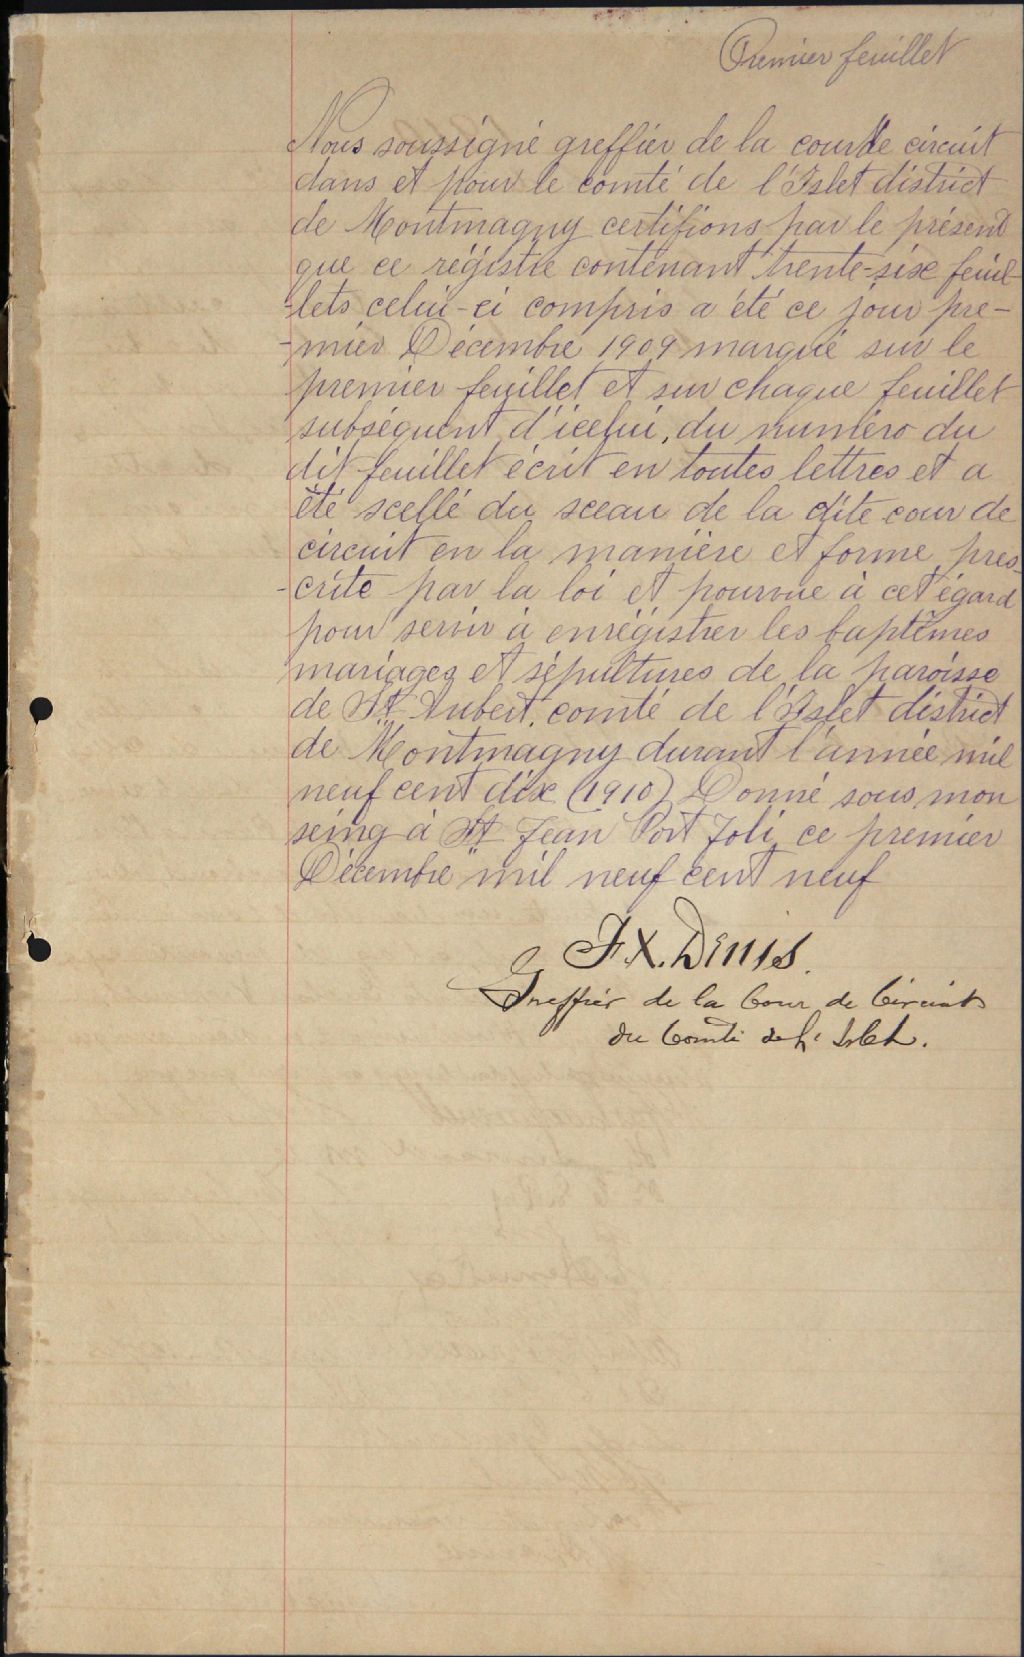 Premier feuillet
Nous soussigné greffier de la cour de circuit
dans et pour le comté de l'Islet district
de Montmagny certifions par le présent
que ce régistre contenant trente-six feuil-
-lets celui-ci compris a été ce jour pre-
-mier Décembre 1909 marqué sur le
premier feuillet et sur chaque feuillet
subséquent d'icelui, du numéro du
dit feuillet écrit en toutes lettres et a
été scellé du sceau de la dite cour de
circuit en la manière et forme pres-
-crite par la loi et pourvue à cet égard
pour servir à enrégistrer les baptêmes
mariages et sépultures de la paroisse
de St Aubert, comté de l'Islet district
de Montmagny durant l'année mil
neuf cent dix (1910) Donné sous mon
seing à St Jean Port Joli ce premier
Décembre mil neuf cent neuf
F. X. Denis.
Greffier de la Cour de Circuit
du Comté de L'Islet.